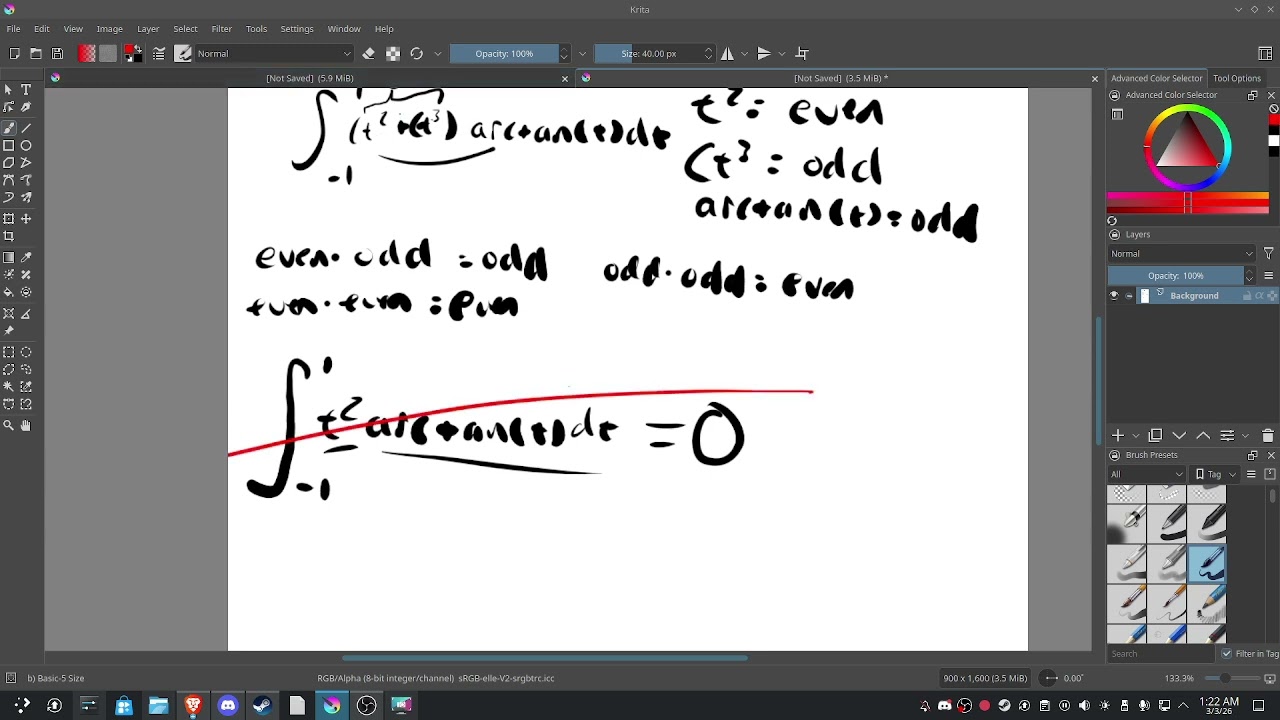 Krita
File Edit View Image Layer Select Filter Tools Settings Window Help
Normal Opacity: 100% Size: 40.00 px
[Not Saved] (5.9 MiB) [Not Saved] (3.5 MiB) * Advanced Color Selector Tool Options
Advanced Color Selector
∫ -1 (t² + Ct³) arctan(t)dt
t² = even
Ct³ = odd
arctan(t) = odd
even · odd = odd odd · odd = even
even · even = even
∫ 1 -1 t² arctan(t)dt = 0
Layers
Normal
Opacity: 100%
Background
Brush Presets
All Tag
Search Filter in Tag
b) Basic-5 Size RGB/Alpha (8-bit integer/channel) sRGB-elle-V2-srgbtrc.icc 900 x 1,600 (3.5 MiB) 0.00° 133.3%
1:22 AM
3/3/26